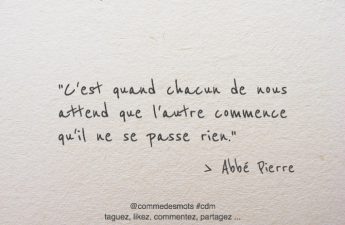 "C'est quand chacun de nous
attend que l'autre commence
qu'il ne se passe rien."
> Abbé Pierre
@commedesmots #cdm
taguez, likez, commentez, partagez ...